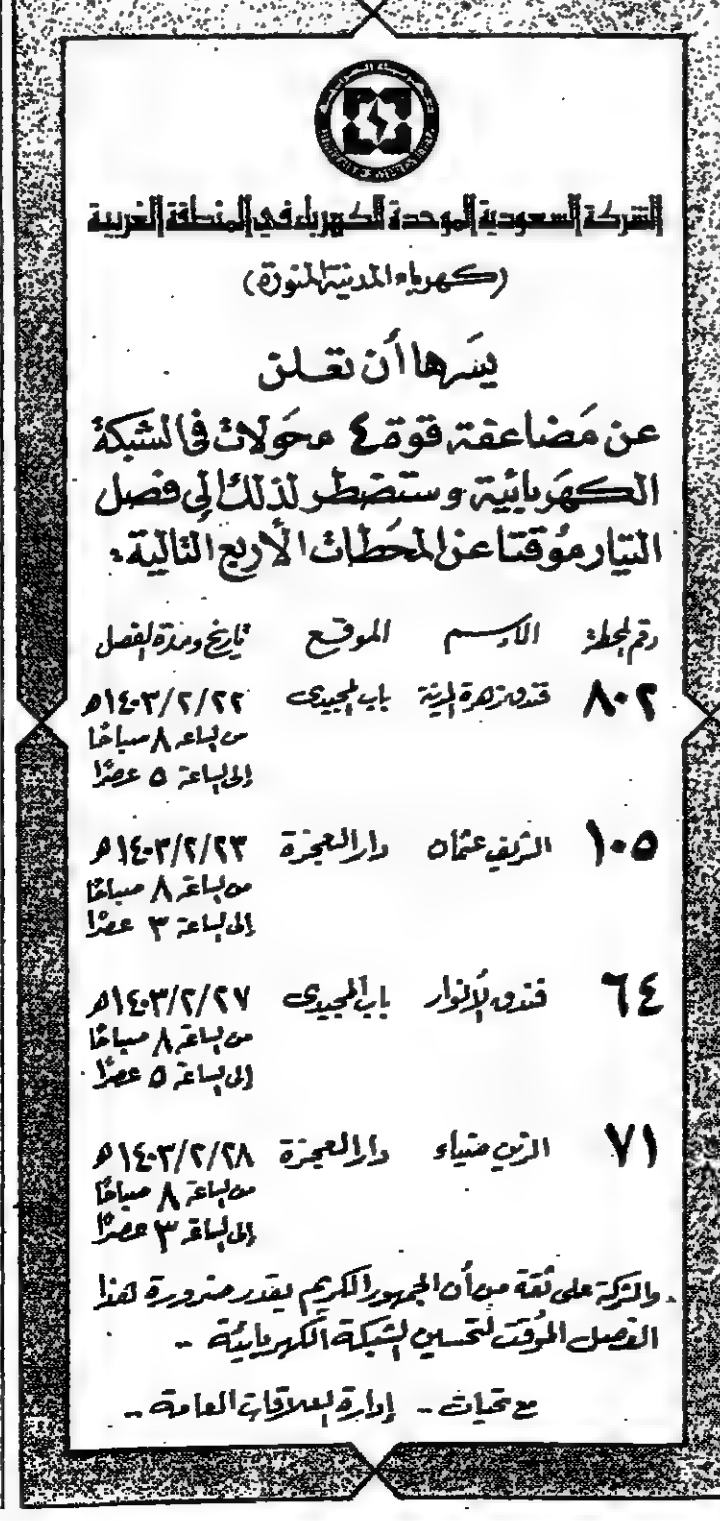 الشركة السعودية الموحدة للكهرباء في المنطقة الغربية
(كهرباء المدينة المنورة)
يسَرها أن تعلن
عن مَضاعفة قوة ٤ محَولات في الشبكة
الكهَربائية وستضطر لذلك إلى فصل
التيار مؤقتا عن المحَطات الأربع التالية:
رقم المحطة الاسم الموقع تاريخ ومدة الفصل
٨٠٢ فندق زهرة المدينة باب المجيدي ١٤٠٣/٢/٢٢هـ
من الساعة ٨ صباحًا
إلى الساعة ٥ عصرًا
١٠٥ الشريف عثمان دار العجزة ١٤٠٣/٢/٢٣هـ
من الساعة ٨ صباحًا
إلى الساعة ٣ عصرًا
٦٤ فندق الأنوار باب المجيدي ١٤٠٣/٢/٢٧هـ
من الساعة ٨ صباحًا
إلى الساعة ٥ عصرًا
٧١ الزين ضياء دار العجزة ١٤٠٣/٢/٢٨هـ
من الساعة ٨ صباحًا
إلى الساعة ٣ عصرًا
والشركة على ثقة من أن الجمهور الكريم يقدر ضرورة هذا
الفصل المؤقت لتحسين الشبكة الكهربائية -
مع تحيات - إدارة العلاقات العامة -